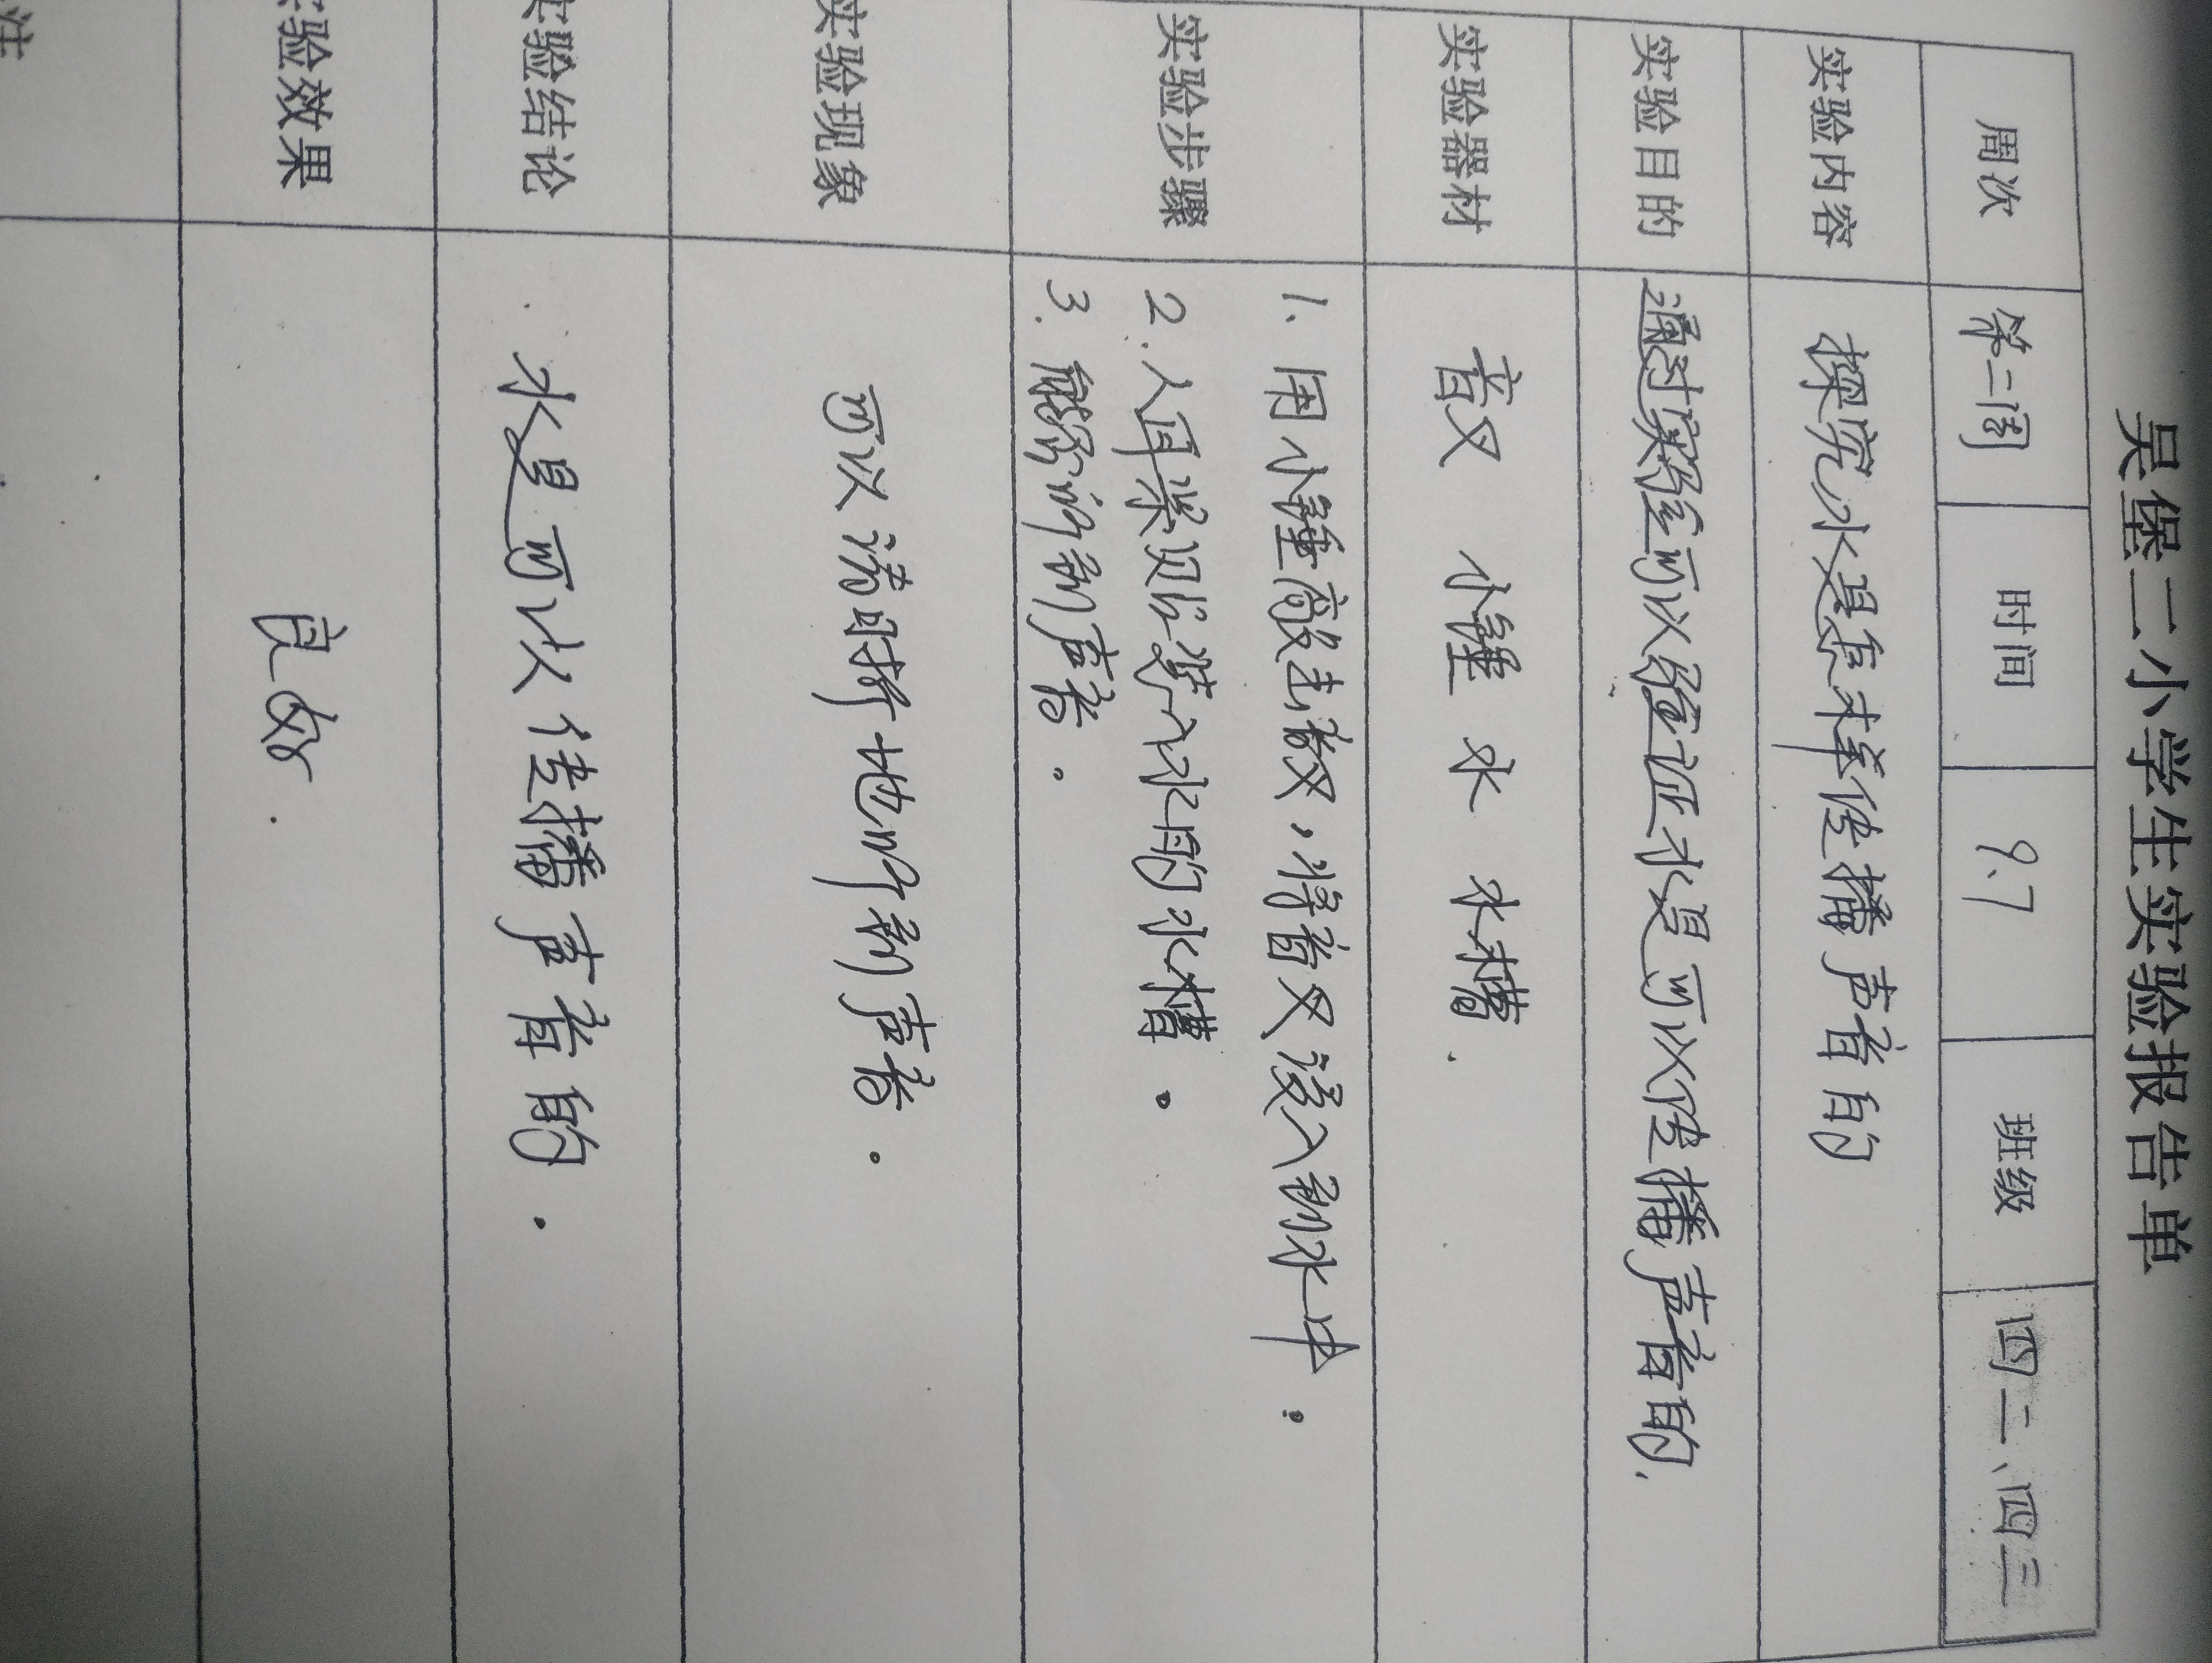 吴堡二小学生实验报告单
周次 第二周 时间 9.7 班级 四二、四三
实验内容 探究水是怎样传播声音的
实验目的 通过实验可以验证水是可以传播声音的.
实验器材 音叉 小锤 水 水槽.
实验步骤 1. 用小锤敲击音叉,将音叉浸入到水中.
2. 人耳紧贴装入水的水槽.
3. 能够听到声音.
实验现象 可以清晰地听到声音.
实验结论 水是可以传播声音的.
实验效果 良好.
注